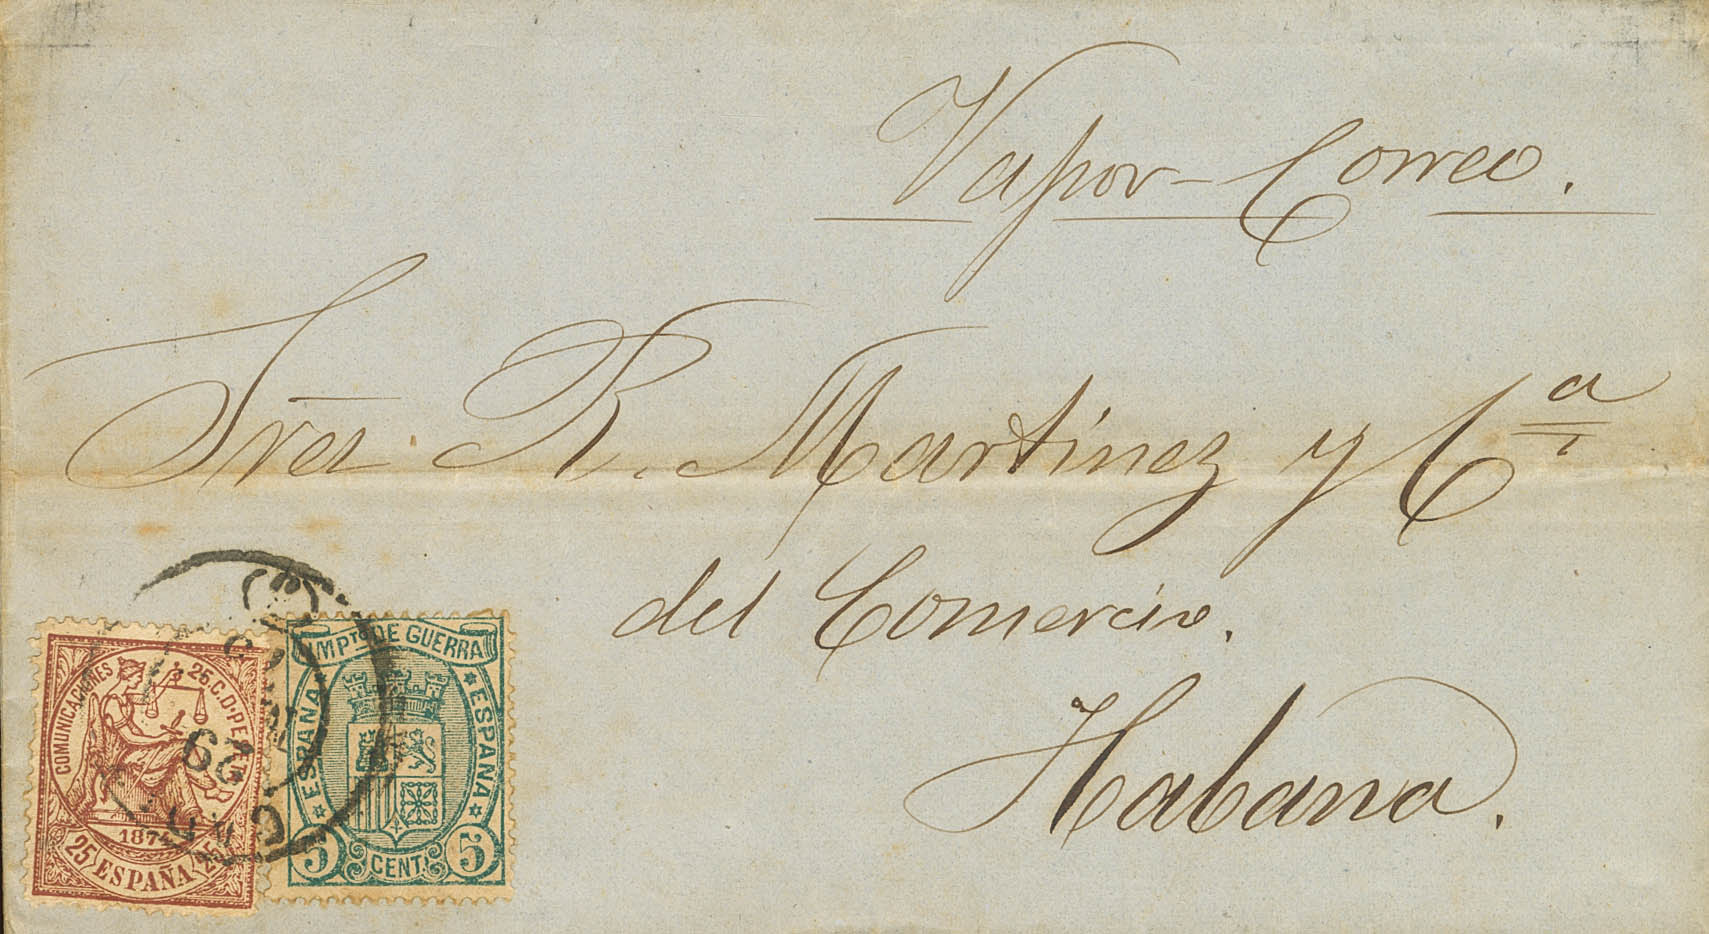 Vapor-Correo.
Sres. R. Martinez y Cª
del Comercio.
Habana.
COMUNICACIONES
25 C. D PESETA
1874
25 ESPAÑA 25
IMPTO DE GUERRA
ESPAÑA
ESPAÑA
5 CENT. 5
29